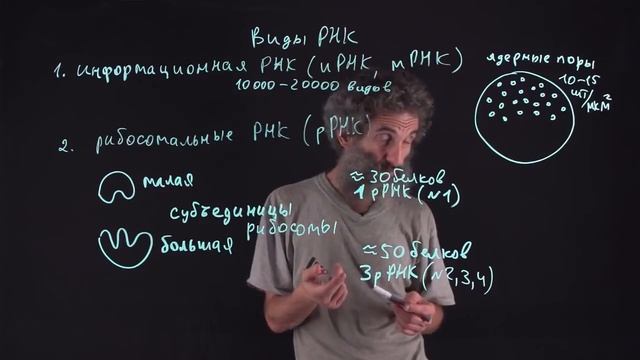 Виды РНК
1. информационная РНК (иРНК, мРНК)
10000-20000 видов
2. рибосомальные РНК (рРНК)
малая
субъединицы
рибосомы
большая
≈30 белков
1 рРНК (№1)
≈50 белков
3 рРНК (№2,3,4)
ядерные поры
10-15
шт/
мкм²